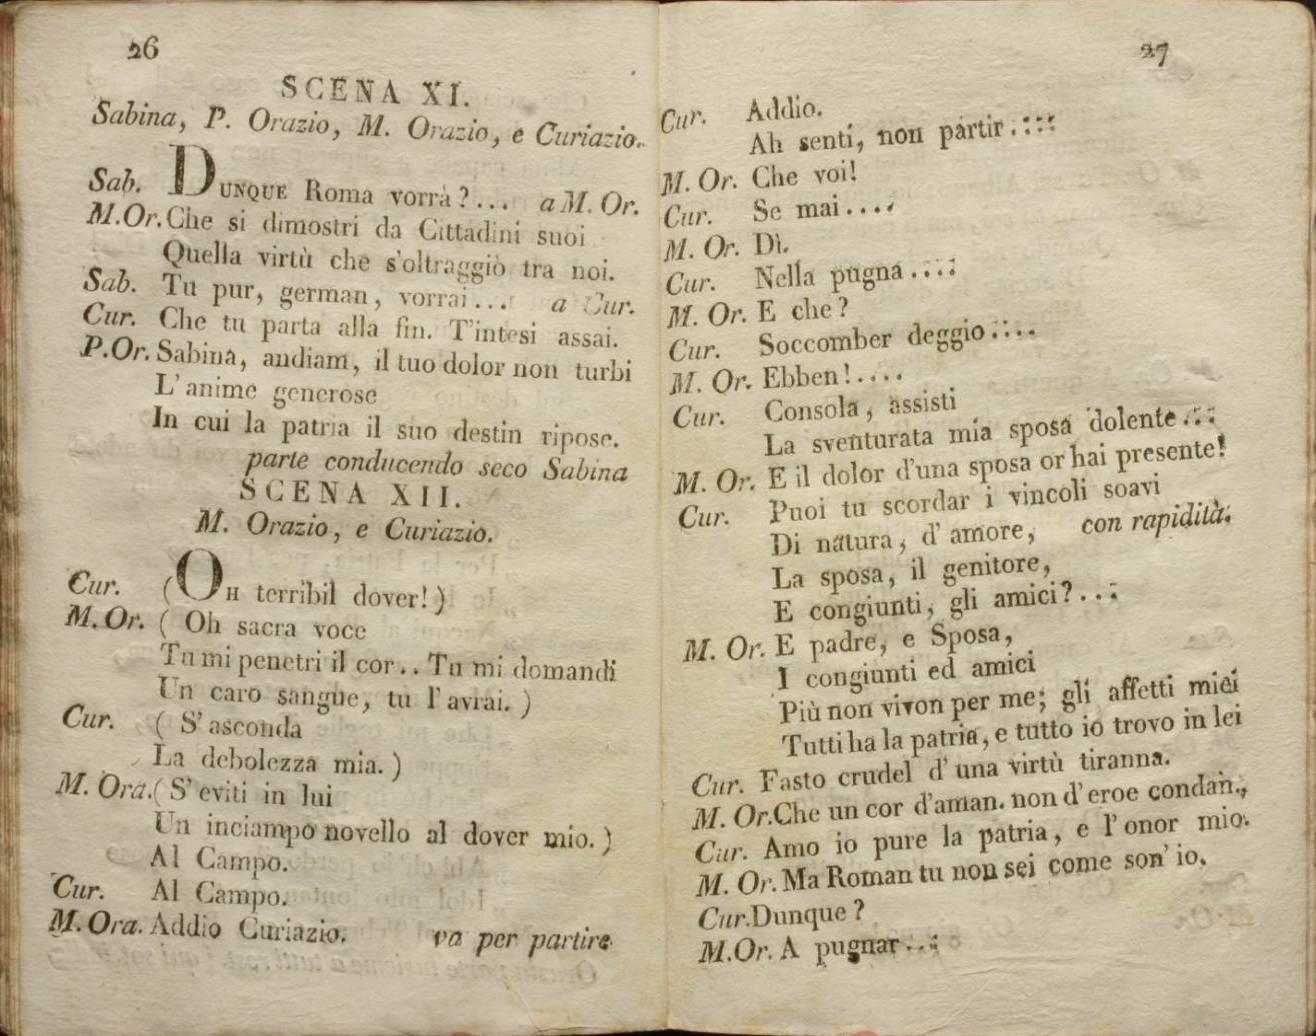 26
SCENA XI.
Sabina, P. Orazio, M. Orazio, e Curiazio.
Sab. DUNQUE Roma vorrà?... a M. Or.
M.Or. Che si dimostri da Cittadini suoi
Quella virtù che s'oltraggiò tra noi.
Sab. Tu pur, german, vorrai... a Cur.
Cur. Che tu parta alla fin. T'intesi assai.
P.Or. Sabina, andiam, il tuo dolor non turbi
L'anime generose
In cui la patria il suo destin ripose.
parte conducendo seco Sabina
SCENA XII.
M. Orazio, e Curiazio.
Cur. (OH terribil dover!)
M.Or. ( Oh sacra voce
Tu mi penetri il cor.. Tu mi domandi
Un caro sangue, tu l'avrai. )
Cur. ( S'asconda
La debolezza mia. )
M. Ora. ( S'eviti in lui
Un inciampo novello al dover mio. )
Al Campo.
Cur. Al Campo.
M. Ora. Addio Curiazio. va per partire
27
Cur. Addio.
Ah senti, non partir....
M. Or. Che voi!
Cur. Se mai....
M. Or. Dì.
Cur. Nella pugna....
M. Or. E che?
Cur. Soccomber deggio....
M. Or. Ebben!....
Cur. Consola, assisti
La sventurata mia sposa dolente...
M. Or. E il dolor d'una sposa or hai presente!
Cur. Puoi tu scordar i vincoli soavi
Di natura, d'amore, con rapidità.
La sposa, il genitore,
E congiunti, gli amici?...
M. Or. E padre, e Sposa,
I congiunti ed amici
Più non vivon per me; gli affetti miei
Tutti ha la patria, e tutto io trovo in lei
Cur. Fasto crudel d'una virtù tiranna.
M. Or. Che un cor d'aman. non d'eroe condan.,
Cur. Amo io pure la patria, e l'onor mio.
M. Or. Ma Roman tu non sei come son' io.
Cur. Dunque?
M.Or. A pugnar...